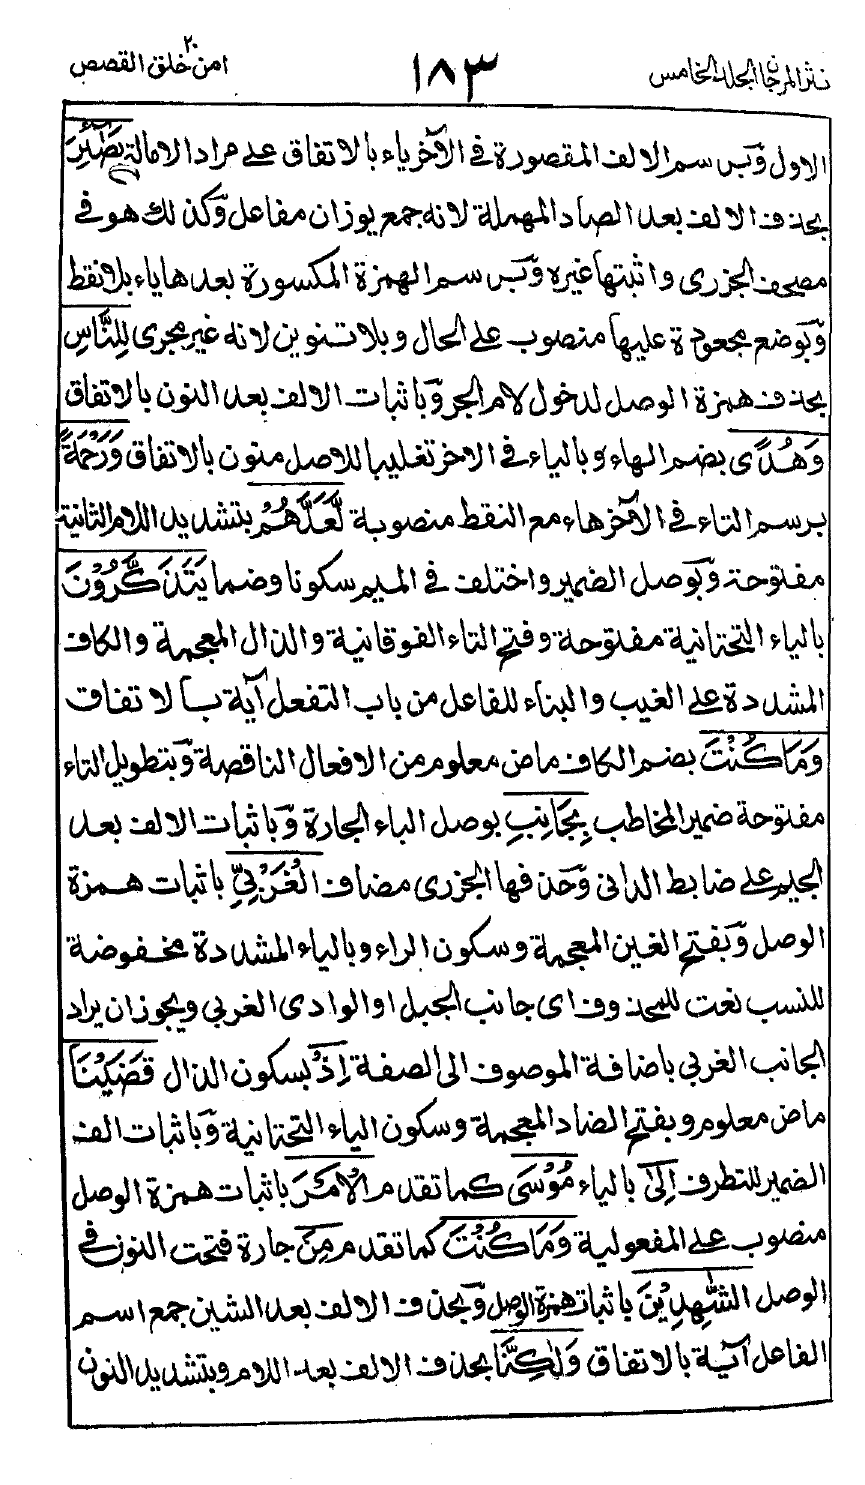 نثر المرجان الجلد الخامس ١٨٣ امن خلق ٢٠ القصص
الاول وبرسم الالف المقصورة فى الآخر ياء بالاتفاق على مراد الامالة بَصَآئِرَ
بحذف الالف بعد الصاد المهملة لانه جمع يوزان مفاعل وكذلك هو فى
مصحف الجزرى واثبتها غيره وبرسم الهمزة المكسورة بعدها ياء بلا نقط
وبوضع مجعودة عليها منصوب على الحال وبلا تنوين لانه غير مجرى لِلنَّاسِ
بحذف همزة الوصل لدخول لام الجر وباثبات الالف بعد النون بالاتفاق
وَهُدًى بضم الهاء وبالياء فى الاخر تغليبا للاصل منون بالاتفاق وَرَحْمَةً
برسم التاء فى الآخر هاء مع النقط منصوبة لَّعَلَّهُمْ بتشديد اللام الثانية
مفتوحة وبوصل الضمير واختلف فى الميم سكونا وضما يَتَذَكَّرُوْنَ
بالياء التحتانية مفتوحة وفتح التاء الفوقانية والذال المعجمة والكاف
المشددة على الغيب والبناء للفاعل من باب التفعل آية بالاتفاق
وَمَا كُنْتَ بضم الكاف ماض معلوم من الافعال الناقصة وبتطويل التاء
مفتوحة ضمير المخاطب بِجَانِبِ بوصل الباء الجارة وباثبات الالف بعد
الجيم على ضابط الدانى وحذفها الجزرى مضاف الْغَرْبِيِّ باثبات همزة
الوصل وبفتح الغين المعجمة وسكون الراء وبالياء المشددة مخفوضة
للنسب نعت للمحذوف اى جانب الجبل او الوادى الغربي ويجوز ان يراد
الجانب الغربي باضافة الموصوف الى الصفة اِذْ بسكون الذال قَضَيْنَآ
ماض معلوم وبفتح الضاد المعجمة وسكون الياء التحتانية وباثبات الف
الضمير للتطرف اِلٰى بالياء مُوْسَى كما تقدم الْاَمْرَ باثبات همزة الوصل
منصوب على المفعولية وَمَا كُنْتَ كما تقدم مِنَ جارة فتحت النون فى
الوصل الشّٰهِدِيْنَ باثبات همزة الوصل وبحذف الالف بعد الشين جمع اسم
الفاعل آية بالاتفاق وَلٰكِنَّا بحذف الالف بعد اللام وبتشديد النون